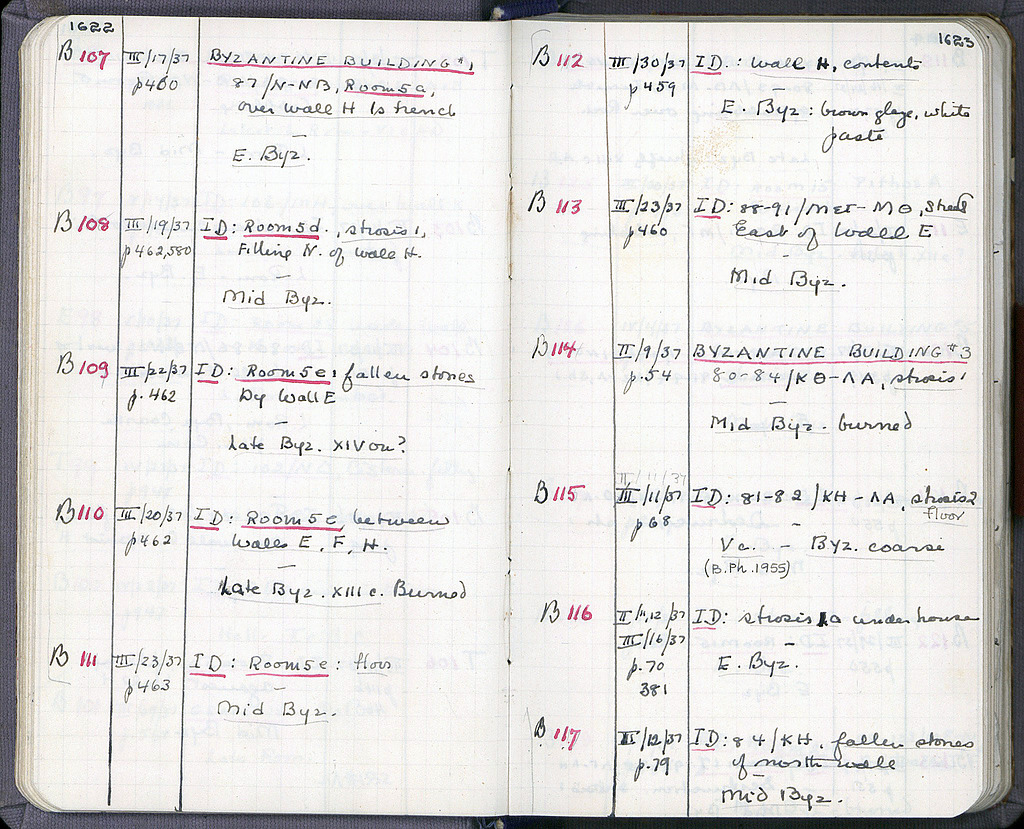 1622
B 107 III/17/37 BYZANTINE BUILDING #1,
p460 87/N-NB, Room 5a,
over wall H 1s trench
—
E. Byz.
B 108 III/19/37 ID: Room 5d., strosis 1,
p462,580 Filling N. of wall H.
—
Mid Byz.
B 109 III/22/37 ID: Room 5e: fallen stones
p. 462 By Wall E
—
Late Byz. XIV on?
B 110 III/20/37 ID: Room 5e, between
p462 Walls E, F, H.
—
Late Byz. XIII c. Burned
B 111 III/23/37 ID: Room 5e: floor
p463 —
Mid Byz.
1623
B 112 III/30/37 ID.: Wall H, contents
p459 —
E. Byz: brown glaze, white
paste
B 113 III/23/37 ID: 88-91/ΜΕΤ-ΜΘ,
p460 East of Wall E
—
Mid Byz.
B 114 II/9/37 BYZANTINE BUILDING #3
p. 54 80-84/ΚΘ-ΛΑ, strosis 1
—
Mid Byz. burned
III/11/37
B 115 III/11/37 ID: 81-82/ΚΗ-ΛΑ, strosis 2
floor
p68 —
V c. - Byz. coarse
(B.Ph. 1955)
B 116 II/11,12/37 ID: strosis 1a under house
III/16/37 —
p.70 E. Byz.
381
B 117 III/12/37 ID: 84/ΚΗ, fallen stones
p.79 of north wall
—
Mid Byz.